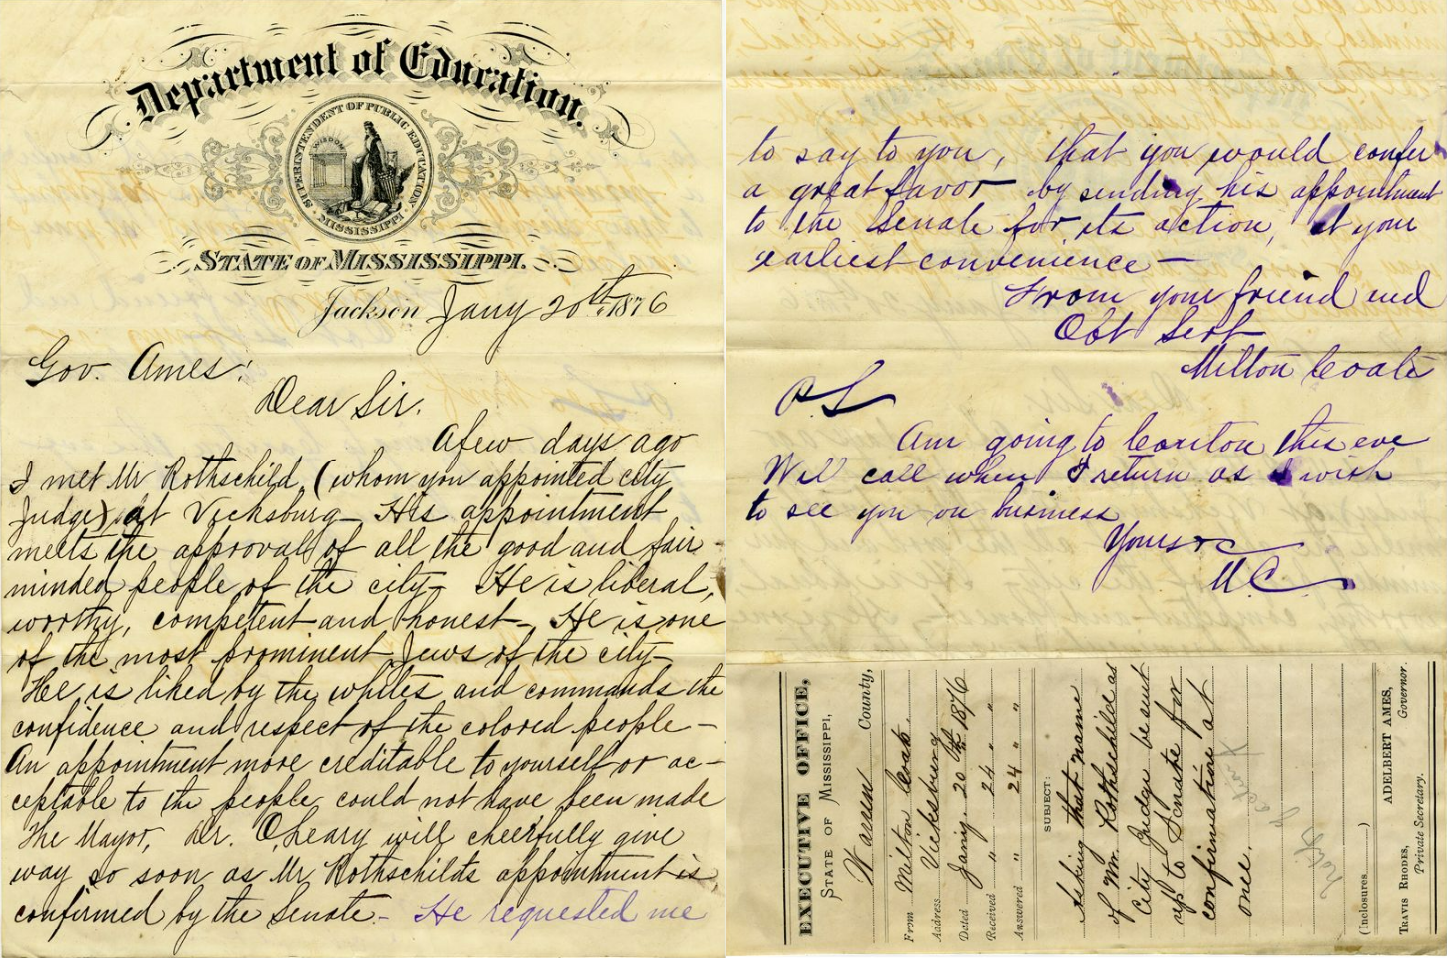 Department of Education.
SUPERINTENDENT OF PUBLIC EDUCATION,
WISDOM
MISSISSIPPI.
STATE OF MISSISSIPPI.
Jackson Jany 20th 1876
Gov. Ames:
Dear Sir.
A few days ago
I met Mr Rothschild, (whom you appointed city
Judge) at Vicksburg - His appointment
meets the approval of all the good and fair-
minded people of the city - He is liberal,
worthy, competent and honest - He is one
of the most prominent Jews of the city -
He is liked by the whites and commands the
confidence and respect of the colored people -
An appointment more creditable to yourself or ac-
ceptable to the people, could not have been made
The Mayor, Dr. O,Leary will cheerfully give
way so soon as Mr Rothschilds appointment is
confirmed by the Senate - He requested me
to say to you, that you would confer
a great favor by sending his appointment
to the Senate for its action, at your
earliest convenience -
From your friend and
Obt Servt
Milton Coats
P.S.
Am going to Canton this eve
Will call when I return as I wish
to see you on business
Yours &c
M.C.
EXECUTIVE OFFICE,
STATE OF MISSISSIPPI,
Warren County,
From Milton Coats.
Address. Vicksburg
Dated Jany. 20th 1876
Received " 24 " "
Answered " 24 " "
SUBJECT:
Asking that name
of Mr. Rothschild as
City Judge be sent
up to Senate for
confirmation at
once.
(Inclosures )
ADELBERT AMES,
Governor.
TRAVIS RHODES,
Private Secretary.